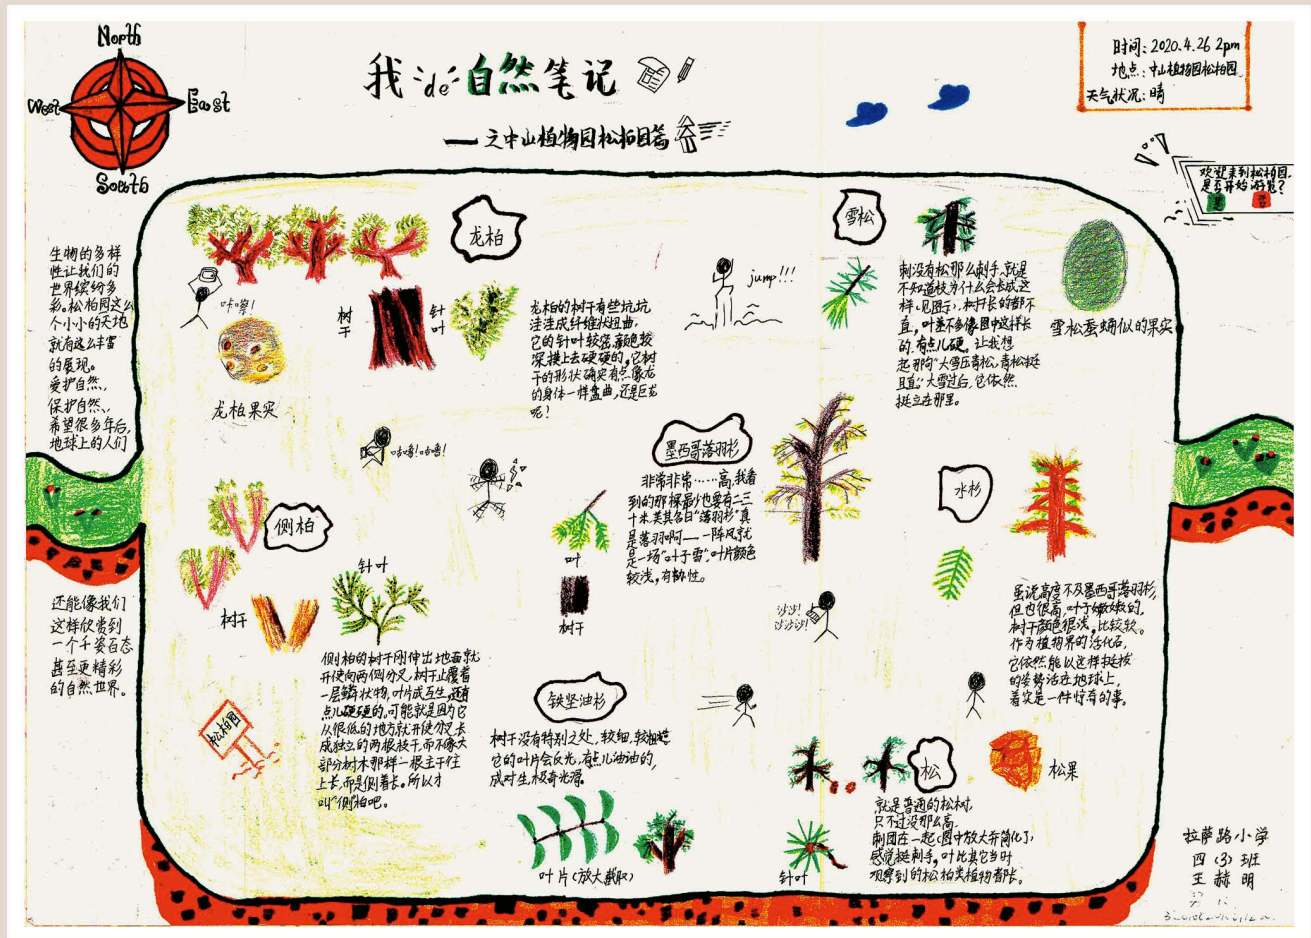 North
West
East
South
我de自然笔记
——之中山植物园松柏园篇
时间:2020.4.26 2pm
地点:中山植物园松柏园
天气状况:晴
欢迎来到松柏园,
是否开始游览?
是 否
生物的多样
性让我们的
世界缤纷多
彩。松柏园这么
个小小的天地
就有这么丰富
的展现。
爱护自然、
保护自然、
希望很多年后,
地球上的人们
还能像我们
这样欣赏到
一个千姿百态
甚至更精彩
的自然世界。
龙柏
咔嚓!
龙柏果实
树干
针叶
龙柏的树干有些坑坑
洼洼成纤维状扭曲,
它的针叶较密,颜色较
深,摸上去硬硬的。它树
干的形状确实有点像龙
的身体一样盘曲,还是巨龙
呢!
jump!!!
雪松
刺没有松那么刺手,就是
不知道枝为什么会长成这
样(见图示),树干长的都不
直,叶差不多像图中这样长
的,有点儿硬。让我想
起那句“大雪压青松,青松挺
且直”大雪过后,它依然
挺立在那里。
雪松蚕蛹似的果实
咕噜!咕噜!
墨西哥落羽杉
非常非常……高,我看
到的那棵最少也要有二三
十米,美其名曰“落羽杉”真
是落羽啊——一阵风就
是一场“叶子雪”,叶片颜色
较浅,有韧性。
叶
树干
水杉
虽说高度不及墨西哥落羽杉,
但也很高,叶子嫩嫩的,
树干颜色很浅,比较软。
作为植物界的活化石,
它依然能以这样挺拔
的姿势活在地球上,
着实是一件惊奇的事。
沙沙!
沙沙沙!
侧柏
针叶
树干
侧柏的树干刚伸出地面就
开使向两侧分叉,树干上覆着
一层鳞状物,叶片成互生,还有
点儿硬硬的,可能就是因为它
从很低的地方就开使分叉长
成独立的两根枝干,而不像大
部分树木那样一根主干往
上长,而是侧着长。所以才
叫“侧”柏吧。
松柏园
铁坚油杉
树干没有特别之处,较细,较粗糙
它的叶片会反光,有点儿油油的,
成对生,极奇光滑。
叶片(放大截取)
松
松果
就是普通的松树,
只不过没那么高,
刺团在一起(图中放大并简化了),
感觉挺刺手,叶比其它当时
观察到的松柏类植物都长。
针叶
拉萨路小学
四(3)班
王赫明